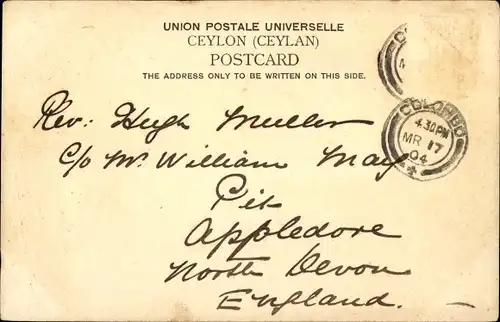 UNION POSTALE UNIVERSELLE
CEYLON (CEYLAN)
POSTCARD
THE ADDRESS ONLY TO BE WRITTEN ON THIS SIDE.
COLOMBO
4.30PM
MR 17
04
Rev: Hugh Muller
c/o Mr. William May
Pit
Appledore
North Devon
England.